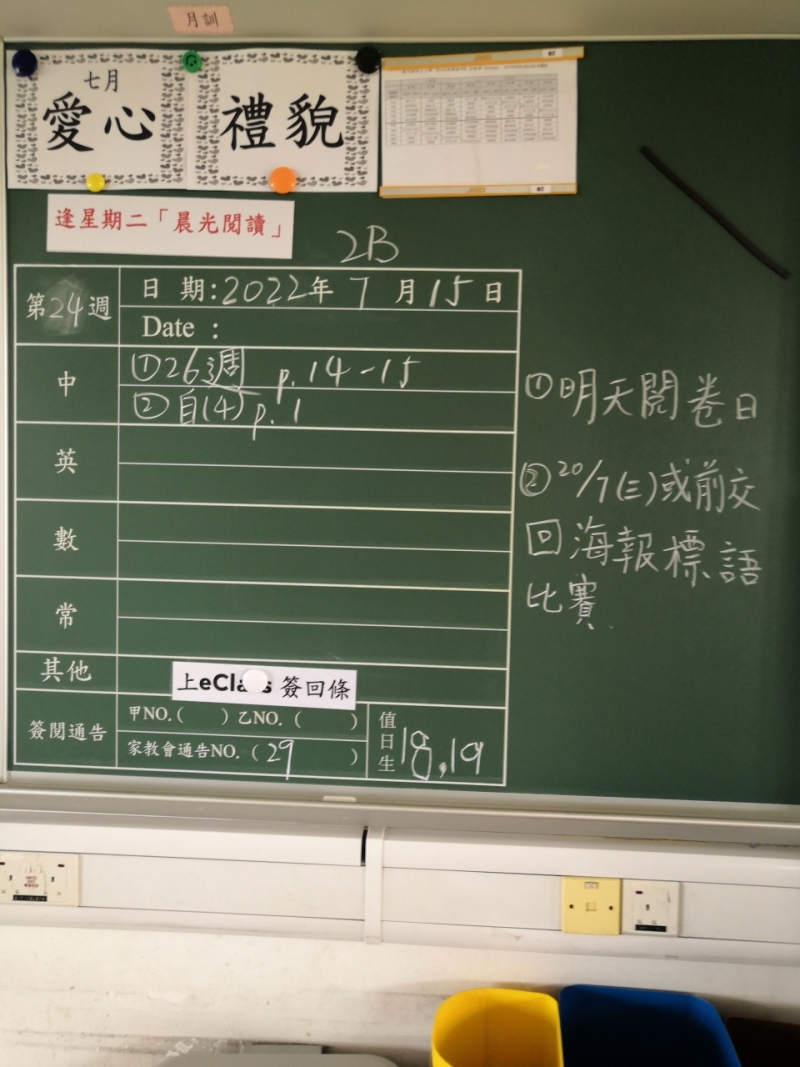 月訓
七月
愛心
禮貌
逢星期二「晨光閱讀」
2B
第24週
日 期:2022年 7 月 15 日
Date :
中
①26週 p.14-15
② 自(4) p.1
英
數
常
其他
上eClass 簽回條
簽閱通告
甲NO.( )乙NO.( )
家教會通告NO.(29 )
值日生
18,19
①明天開卷日
②20/7(三)或前交
回海報標語
比賽.